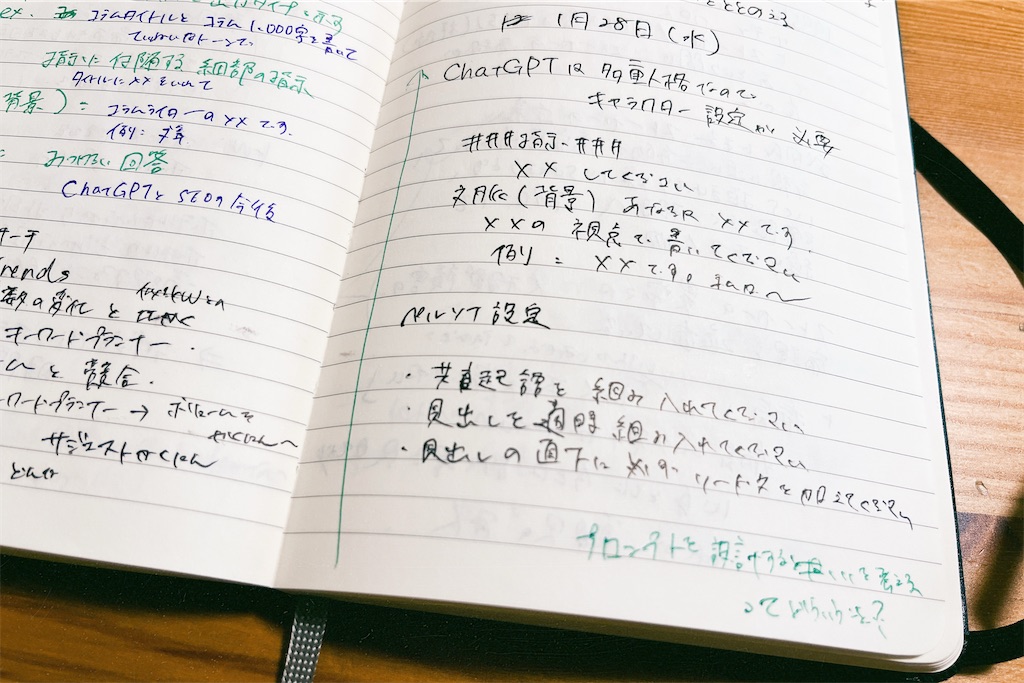 ex. コラムタイトルとコラム1,000字を書いて
ていねいなトーンで、
指示に付随する細部の指示
タイトルに××をいれて
背景) =
コラムライターの××です。
例:
回答
ChatGPTとSEOの今後
rends
数の変化と
キーワードプランナー.
と競合.
ワードプランナー → ボリュームを
サジェスト かくにん
1月28日(水)
ChatGPTは多重人格なので、
キャラクター設定が必要
###指示.###
××してください
文脈(背景) あなたは××です。
××の視点で、書いてください
例 = ××です。
ペルソナ設定
・共起語を組み入れてください
・見出しを適時組み入れてください
・見出しの直下に必ずリード文を加えてください
プロンプトを設計する
ってどういう